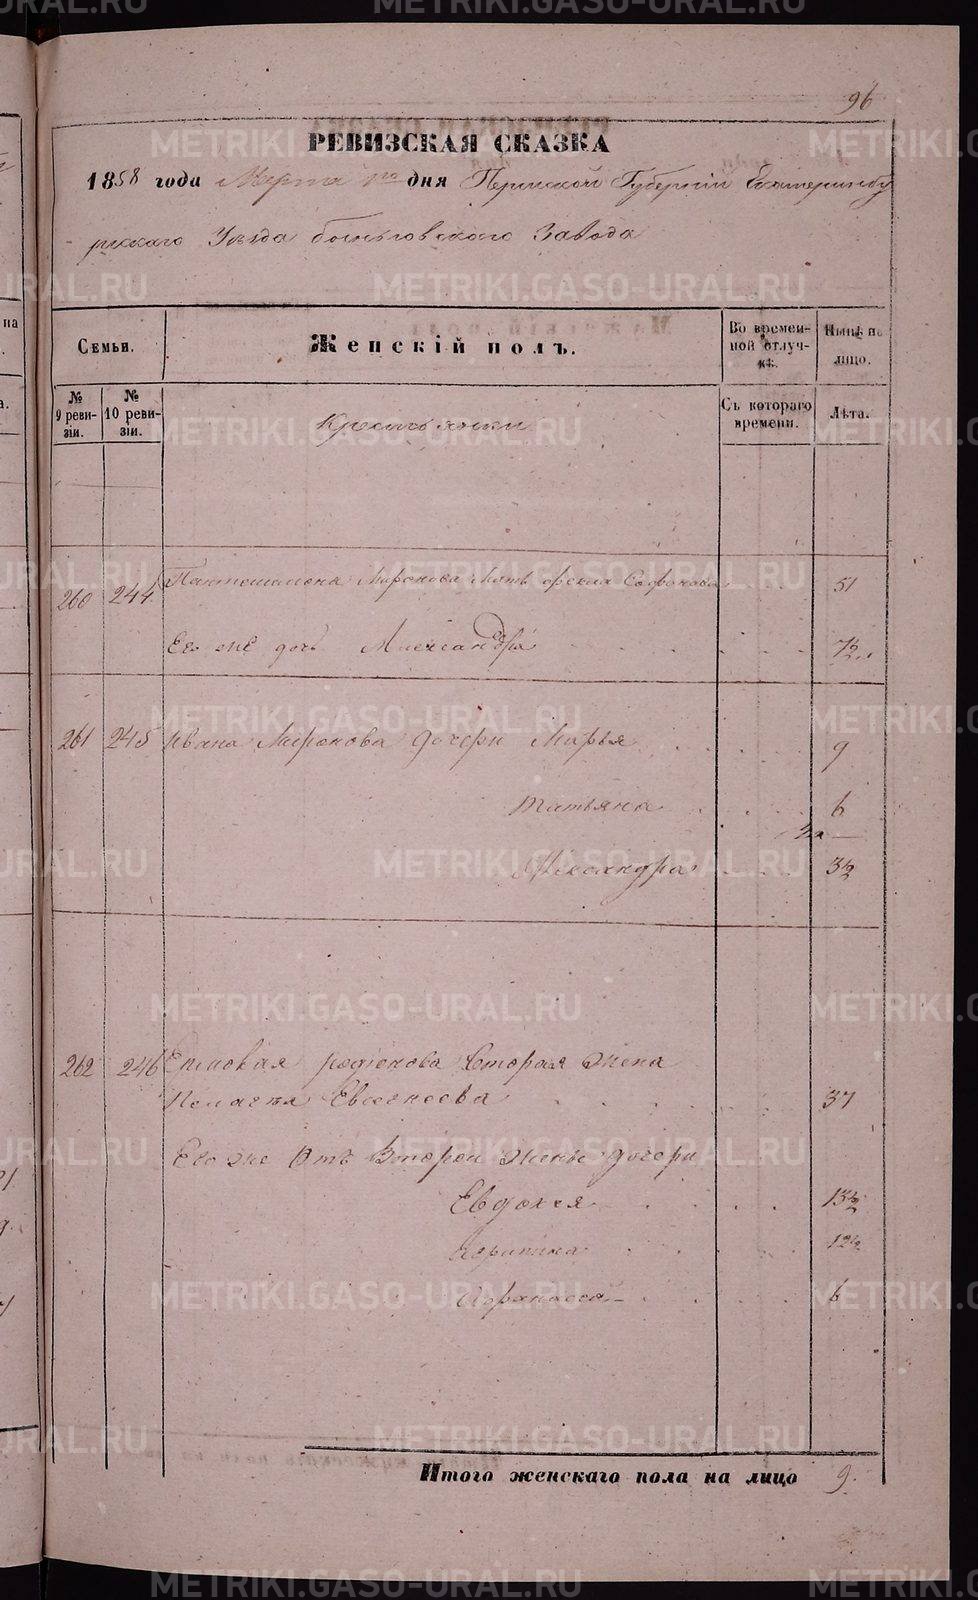 METRIKI.GASO-URAL.RU
96
РЕВИЗСКАЯ СКАЗКА
1858 года Марта 1го дня Пермской Губернiи Екатеринбу
ргскаго Уезда Завода
Семьи.
Женскiй полъ.
Во времен-
ной отлуч-
кѣ.
Нынѣ на
лицо.
№
9 реви-
зiи.
№
10 реви-
зiи.
Крестьянки
Съ котораго
времени.
Лѣта.
260 244 Миронова Мать Софонова 51
Его же дочь Александра
261 245 Ивана Миронова дочери Марья 9
Татьяна 6
Александра 3½
262 246 Родiонова вторая жена
Евсеҍева 37
Его же Отъ Второй жены дочери
Евдокея
12½
6
Итого женскаго пола на лицо 9.